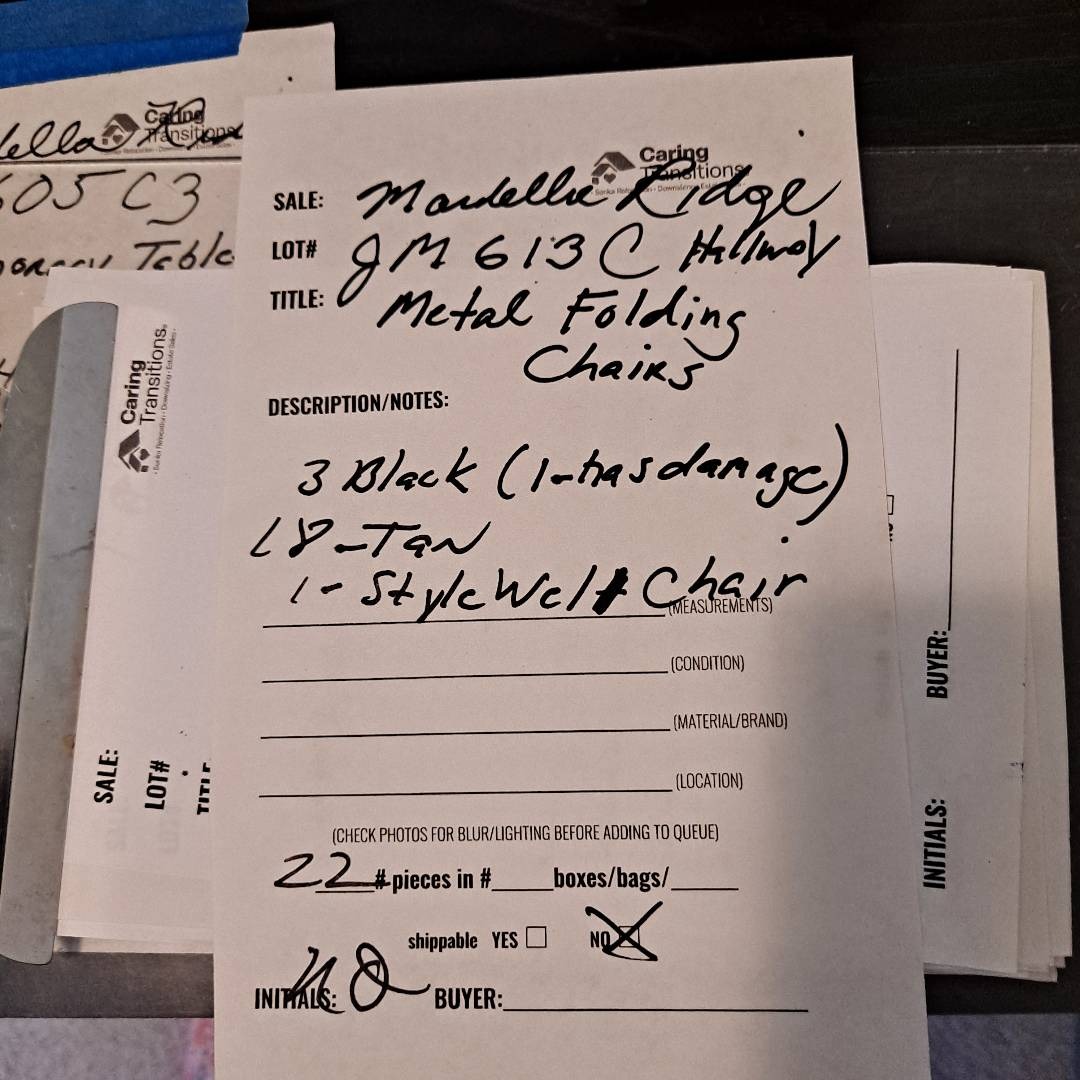 Caring
Transitions
605 C3
Table
Caring
Transitions
SALE: Mardella Ridge
LOT# JM 613 C Hallway
TITLE: Metal Folding
Chairs
DESCRIPTION/NOTES:
3 Black (1-has damage)
18-Tan
1- StyleWell Chair
(MEASUREMENTS)
(CONDITION)
(MATERIAL/BRAND)
(LOCATION)
(CHECK PHOTOS FOR BLUR/LIGHTING BEFORE ADDING TO QUEUE)
22 # pieces in # boxes/bags/
shippable YES NO
INITIALS: BUYER:
Caring
Transitions
SALE:
LOT#
TITLE
BUYER:
INITIALS: